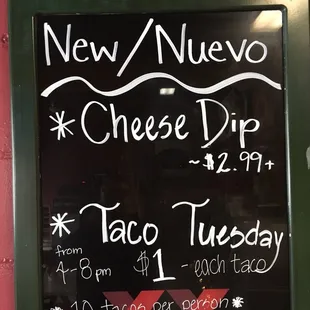 New/Nuevo
* Cheese Dip
~$2.99+
* Taco Tuesday
from
4-8pm $1 - each taco
* 10 tacos per person *